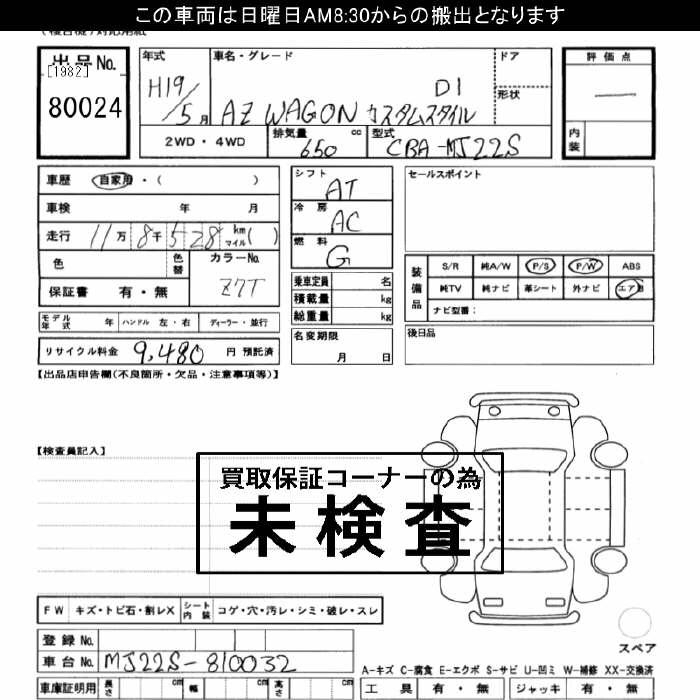 この車両は日曜日AM8:30からの搬出となります
出品No.
[1982]
80024
年式 車名・グレード ドア 形状
H19/5月 AZ WAGON カスタムスタイル DI
2WD・4WD 排気量 650 cc 型式 CBA-MJ22S
評価点
内装
車歴 自家用・( )
車検 年 月
走行 11万8千528 km マイル( )
色 色替 カラーNo. Z7T
保証書 有・無
モデル年式 年 ハンドル 左・右 ディーラー・並行
リサイクル料金 9,480 円 預託済
シフト AT
冷房 AC
燃料 G
乗車定員 名
積載量 kg
総重量 kg
名変期限 月 日
セールスポイント
装備品 S/R 純A/W P/S P/W ABS
純TV 純ナビ 革シート 外ナビ エアB
ナビ型番:
後日品
【出品店申告欄(不良箇所・欠品・注意事項等)】
【検査員記入】
買取保証コーナーの為
未検査
FW キズ・トビ石・割レX シート内装 コゲ・穴・汚レ・シミ・破レ・スレ
登録No.
車台No. MJ22S-810032
車庫証明用 長さ cm 幅 cm 高さ cm
スペア
A-キズ C-腐食 E-エクボ S-サビ U-凹ミ W-補修 XX-交換済
工具 有・無 ジャッキ 有・無